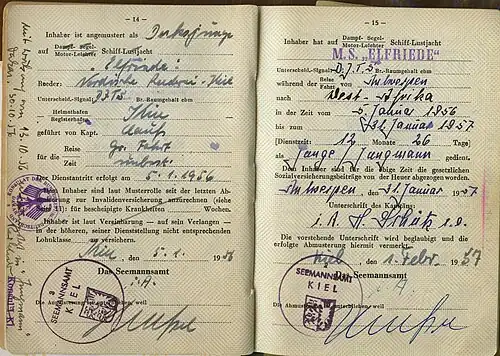 — 14 —
Inhaber ist angemustert als Decksjunge
auf Dampf- Segel- Motor-Leichter Schiff-Lustjacht
"Elfriede"
Reeder:
Unterscheid.-Signal: DJTS Br.-Raumgehalt ebm.
Heimathafen
Registerhafen Kiel
geführt von Kapt. Clauß
für die Reise Zeit gr. Fahrt
unbest.
Der Dienstantritt erfolgt am 5.1.1956
Den Inhaber sind laut Musterrolle seit der letzten Ab-
musterung zur Invalidenversicherung anzurechnen (siehe
Seite 11): für bescheinigte Krankheiten Wochen.
Inhaber ist laut Versicherung — auf sein Verlangen —
in der höheren, seiner Dienststellung nicht entsprechenden
Lohnklasse zu versichern.
Kiel, den 5.1. 1956
Das Seemannsamt
i.A.
SEEMANNSAMT
KIEL
— 15 —
Inhaber hat auf Dampf- Segel- Motor-Leichter Schiff-Lustjacht
M.S. „ELFRIEDE"
Unterscheid.-Signal: DJTS Br.-Raumgehalt ebm
während der Reise Fahrt von Antwerpen
nach West-Afrika
in der Zeit vom 5. Januar 1956
bis zum 31. Januar 1957
[Dienstzeit 12 Monate 26 Tage]
als Junge / Jungmann gedient.
Den Inhaber sind für die obige Zeit die gesetzlichen
Sozialversicherungsbeiträge von der Heuer abgezogen worden.
Antwerpen, 31. Januar 1957
Unterschrift des Kapitäns:
Die vorstehende Unterschrift wird beglaubigt und die
erfolgte Abmusterung hiermit vermerkt.
Kiel, den 1. Febr. 1957
Das Seemannsamt
i.A.
SEEMANNSAMT
KIEL